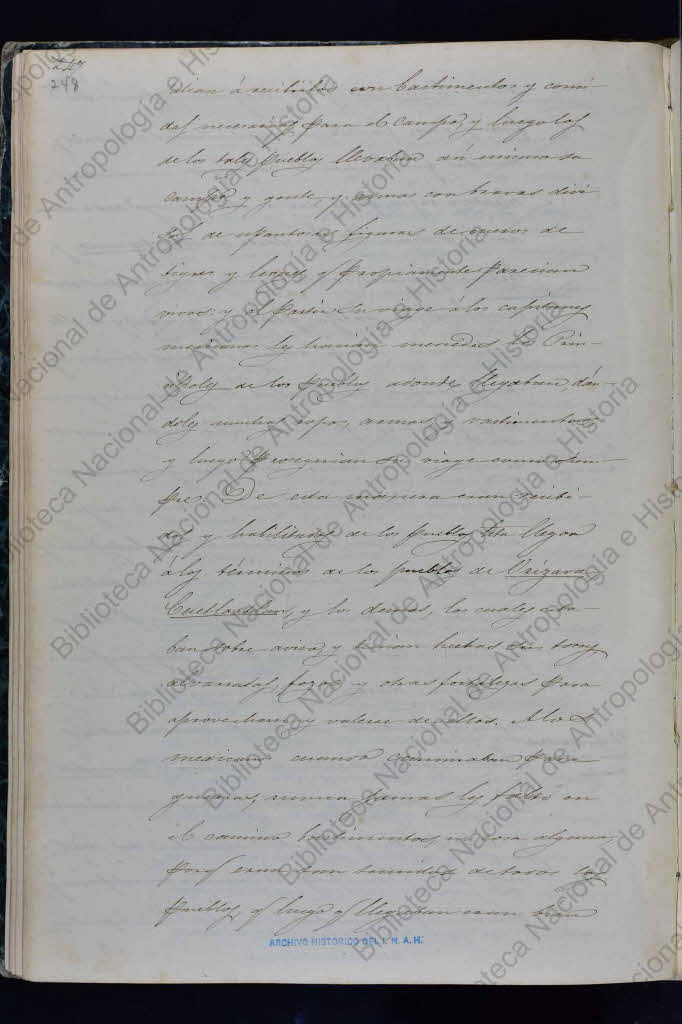 247
248
dian á recibirlos con bastimentos y comi-
das necesarias para el campo, y luego los
de los tales pueblos llevaban así mismo su
campo y gente, y armas con bravas divi-
sas de espantosas figuras de cueros de
tigres y leones q' propiamente parecian
vivos: y al partir su viage á los capitanes
mexicanos les hacian mercedes los Prin-
cipales de los Pueblos adonde llegaban, dán-
doles mucha ropa, armas, y vastimentos,
y luego proseguian su viage como siem-
pre. De esta manera eran recibi-
dos y habilitados de los pueblos hta llegar
á los términos de los pueblos de Orizava,
Cuetlaxtlan, y los demas, los cuales esta-
ban sobre aviso, y tenian hechas sus torres
alvarradas, fozas, y otras fortalezas para
aprovecharse y valerse de ellos. A los
mexicanos cuando caminaban para
guerras, nunca jamas les faltó en
el camino bastimentos, ni cosa alguna,
porq' eran tan temidos de todos los
Pueblos, q' luego q' llegaban eran bien
ARCHIVO HISTORICO DEL I. N. A. H.
Biblioteca Nacional de Antropología e Historia